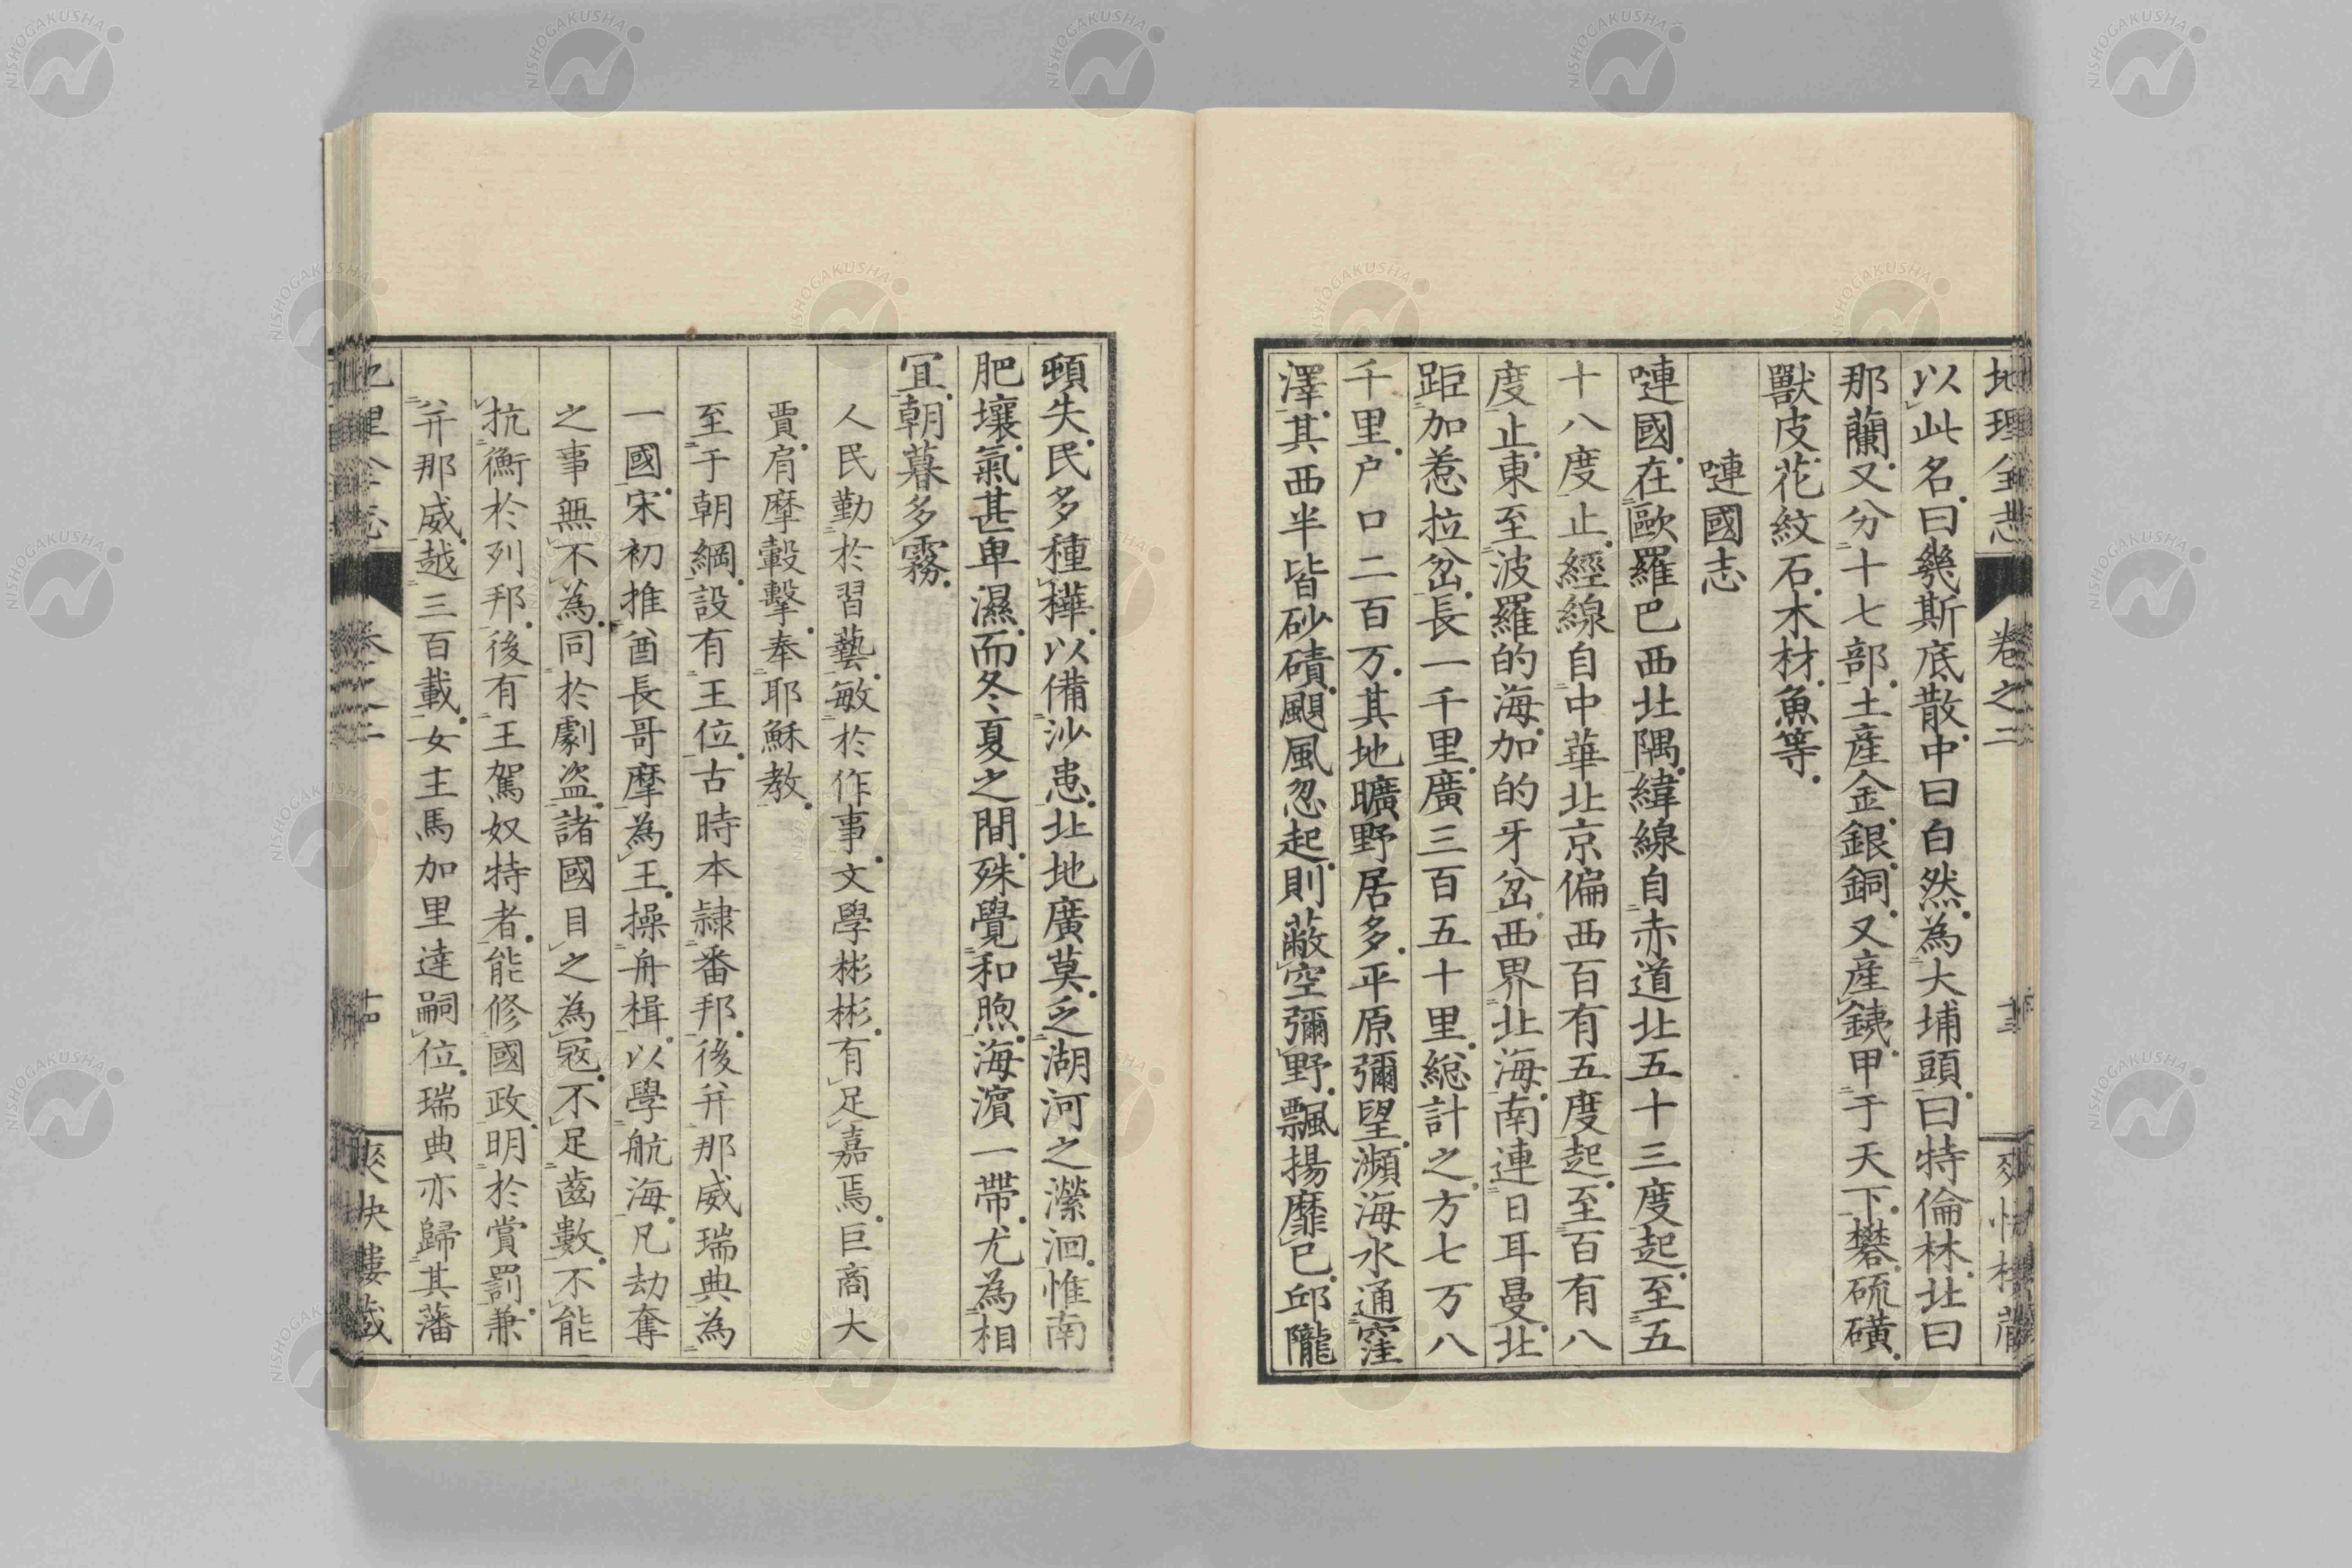 地理全志 卷之二
以此名曰幾斯底散中曰白然為大埔頭曰特倫林北曰
那蘭又分十七部土產金銀銅又產鐵甲于天下礬硫磺
獸皮花紋石木材魚等
嗹國志
嗹國在歐羅巴西北隅緯線自赤道北五十三度起至五
十八度止經線自中華北京偏西百有五度起至百有八
度止東至波羅的海加的牙岔西界北海南連日耳曼北
距加惹拉岔長一千里廣三百五十里總計之方七万八
千里户口二百万其地曠野居多平原彌望瀕海水通窪
澤其西半皆砂磧颶風忽起則蔽空彌野飄揚靡已邱隴
頓失民多種樺以備沙患北地廣莫乏湖河之瀠洄惟南
肥壤氣甚卑濕而冬夏之間殊覺和煦海濵一帶尤為相
宜朝暮多霧
人民勤於習藝敏於作事文學彬彬有足嘉焉巨商大
賈肩摩轂擊奉耶穌教
至于朝綱設有王位古時本隷番邦後并那威瑞典為
一國宋初推酋長哥摩為王操舟楫以學航海凡劫奪
之事無不為同於劇盗諸國目之為寇不足齒數不能
抗衡於列邦後有王駕奴特者能修國政明於賞罰兼
并那威越三百載女主馬加里達嗣位瑞典亦歸其藩